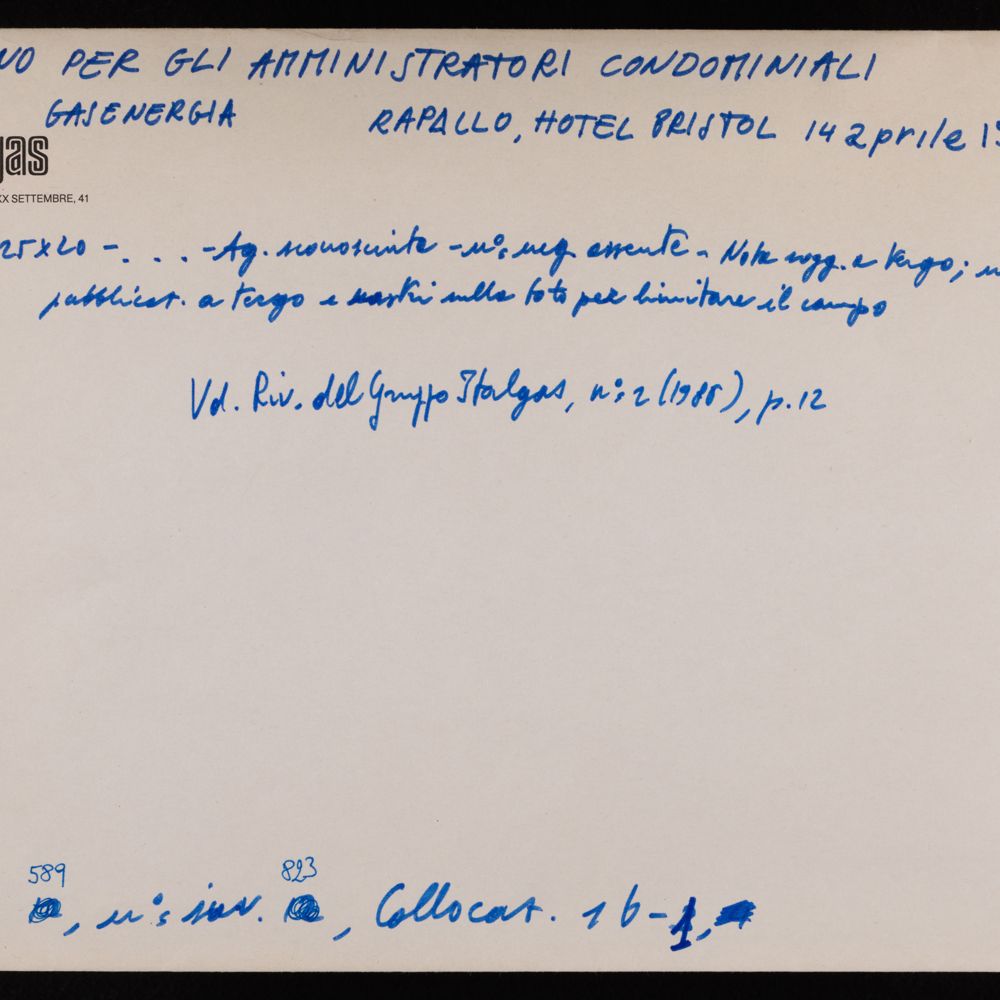 NO PER GLI AMMINISTRATORI CONDOMINIALI
GASENERGIA RAPALLO, HOTEL BRISTOL 14 aprile 19
gas
XX SETTEMBRE, 41
25x20 - . . . - Ag. sconosciuta - n°: neg. assente - Nota sogg. a tergo;
pubblicat. a tergo e nastri sulla foto per limitare il campo
Vd. Riv. del Gruppo Italgas, n°: 2 (1986), p. 12
589 823
, n°: inv. , Collocat. 1 b - 1,